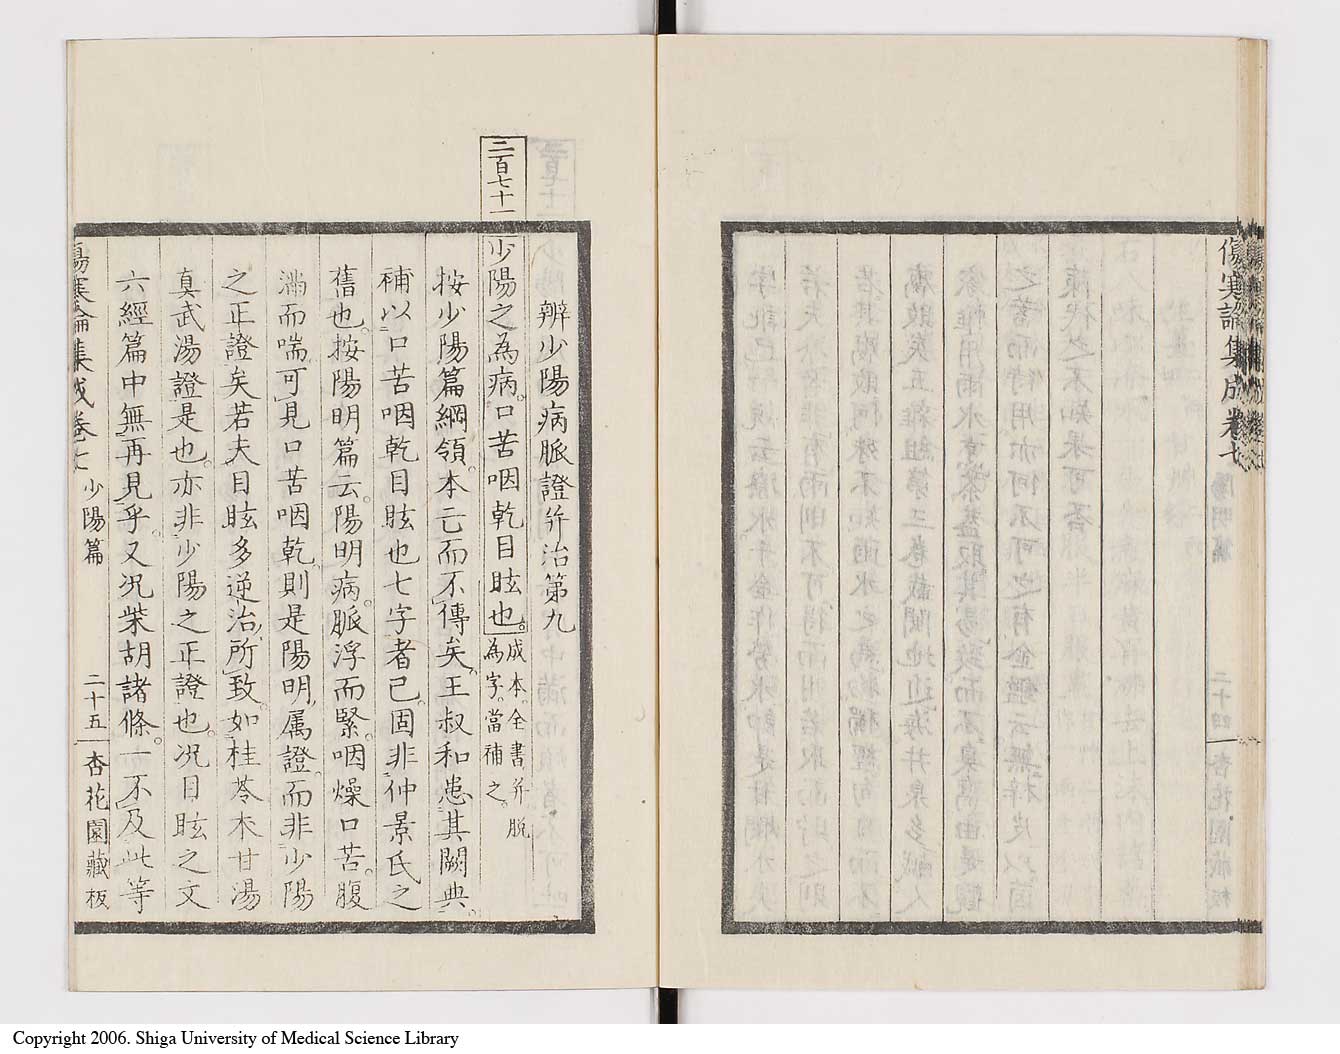 傷寒論集成卷七
陽明篇
二十四
杏花園藏板
二百七十一
辨少陽病脈證并治第九
少陽之為病。口苦咽乾目眩也。成本。全書并脫
為字。當補之。
按少陽篇綱領。本亡而不傳矣。王叔和患其闕典。
補以口苦咽乾目眩也七字者已。固非仲景氏之
舊也。按陽明篇云。陽明病。脈浮而緊。咽燥口苦。腹
滿而喘。可見口苦咽乾。則是陽明屬證。而非少陽
之正證矣。若夫目眩多逆治所致。如桂苓朮甘湯
真武湯證是也。亦非少陽之正證也。況目眩之文
六經篇中無再見乎。又況柴胡諸條。一不及此等
傷寒論集成卷七
少陽篇
二十五
杏花園藏板
Copyright 2006. Shiga University of Medical Science Library